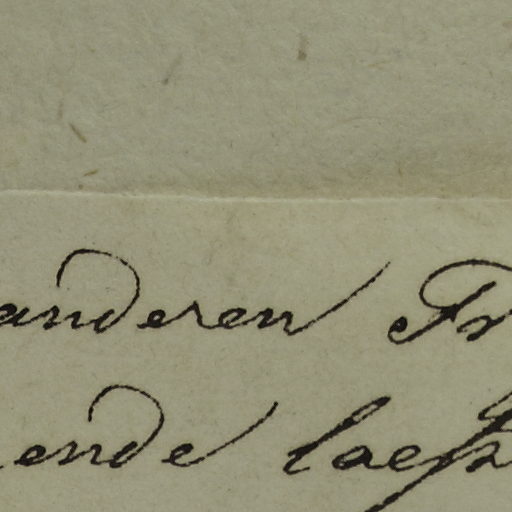 anderen Fr
ende laess